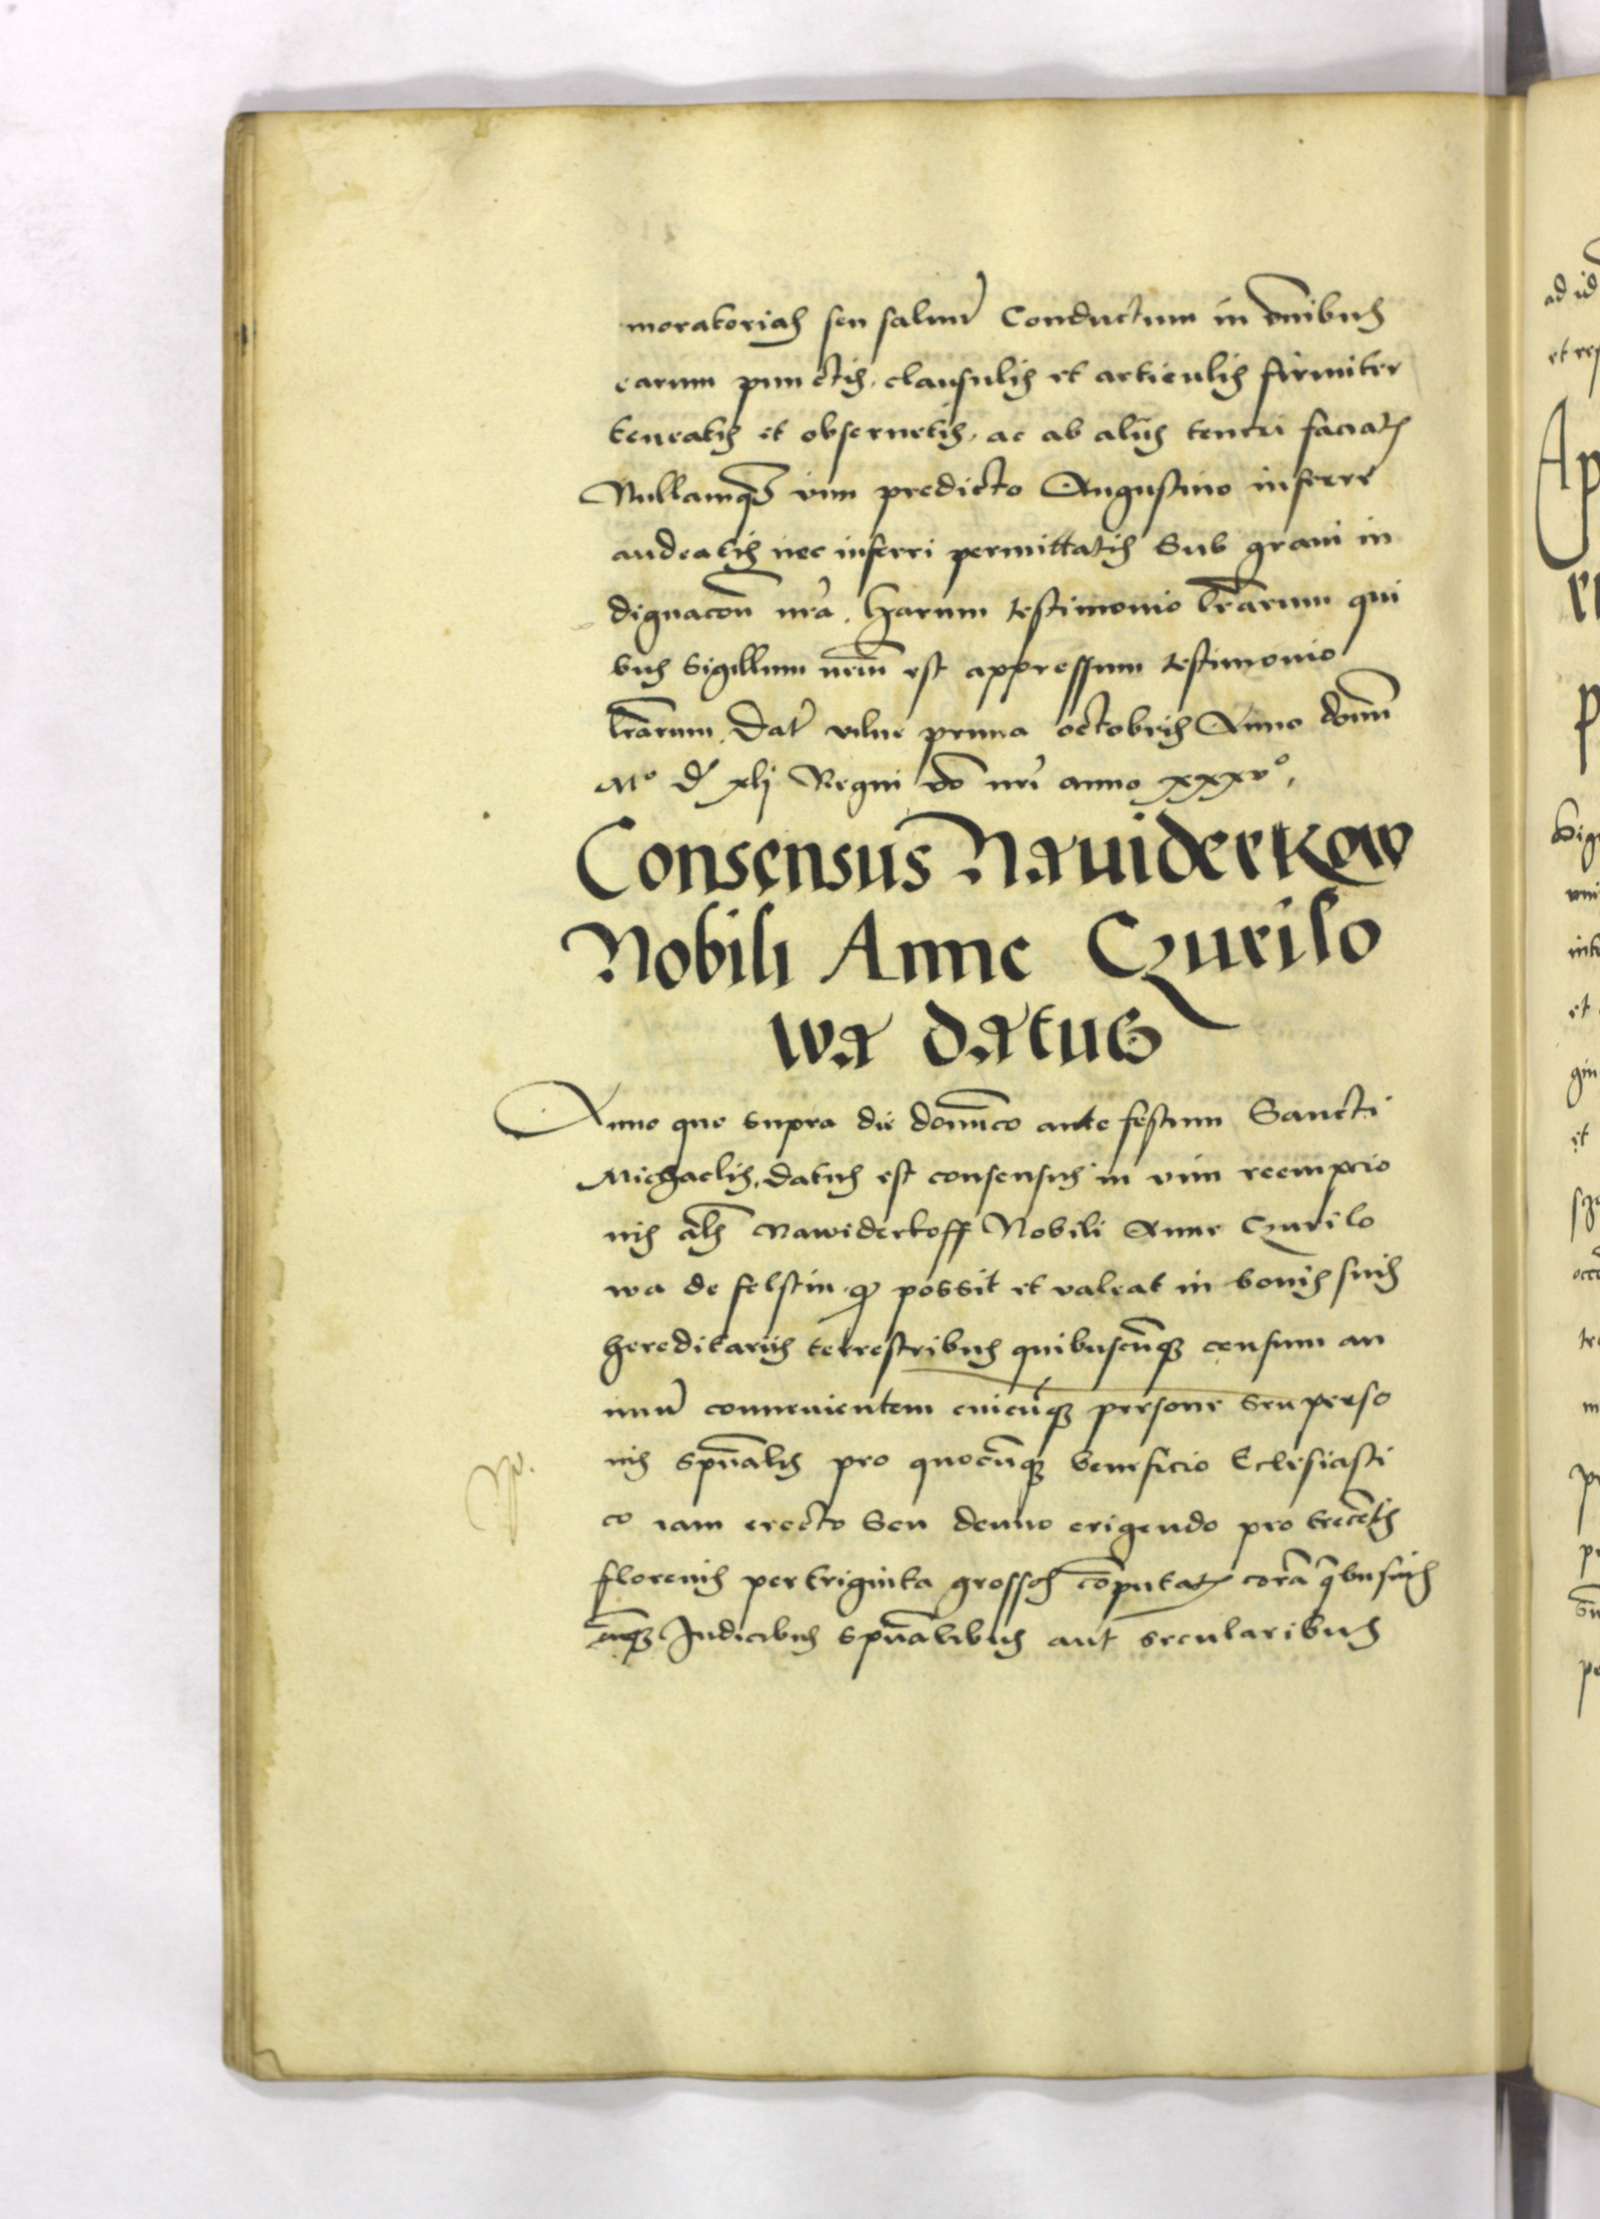 moratorias seu saluu Conductum in om̄ibus
earum punctis, clausulis et articulis firmiter
teneatis et obseruetis, ac ab alijs teneri faciatis
Nullamq̃ vim predicto Augustino inferre
audeatis nec inferri permittatis Sub graui in
dignac̄on nr̃a. Harum testimonio lr̄arum qui
bus Sigillum nr̄m est appressum testimonio
lr̄arum. Dat vilne prima octobris Anno domi
Mº d xlj Regni v̄o nr̄i anno xxxvº.
Consensus Nauiderkow
Nobili Anne Czurilo
wa datus
Anno quo supra die dom̄co ante festum Sancti
Michaelis, datus est consensus in vim reempcio
nis al̄s Nawiderkoff Nobili Anne Czurilo
wa de felstin ꝙ possit et valeat in bonis suis
hereditarijs terrestribus quibuscūq censum an
nuu conuenientem cuicūq persone seu perso
nis sp̄ualis pro quocūq beneficio Eclesiasti
co iam erecto Seu denuo erigendo pro trecētis
florenis per triginta grossos cōputatis corā q̄busuis
cūq Iudicibus sp̄ualibus aut secularibus